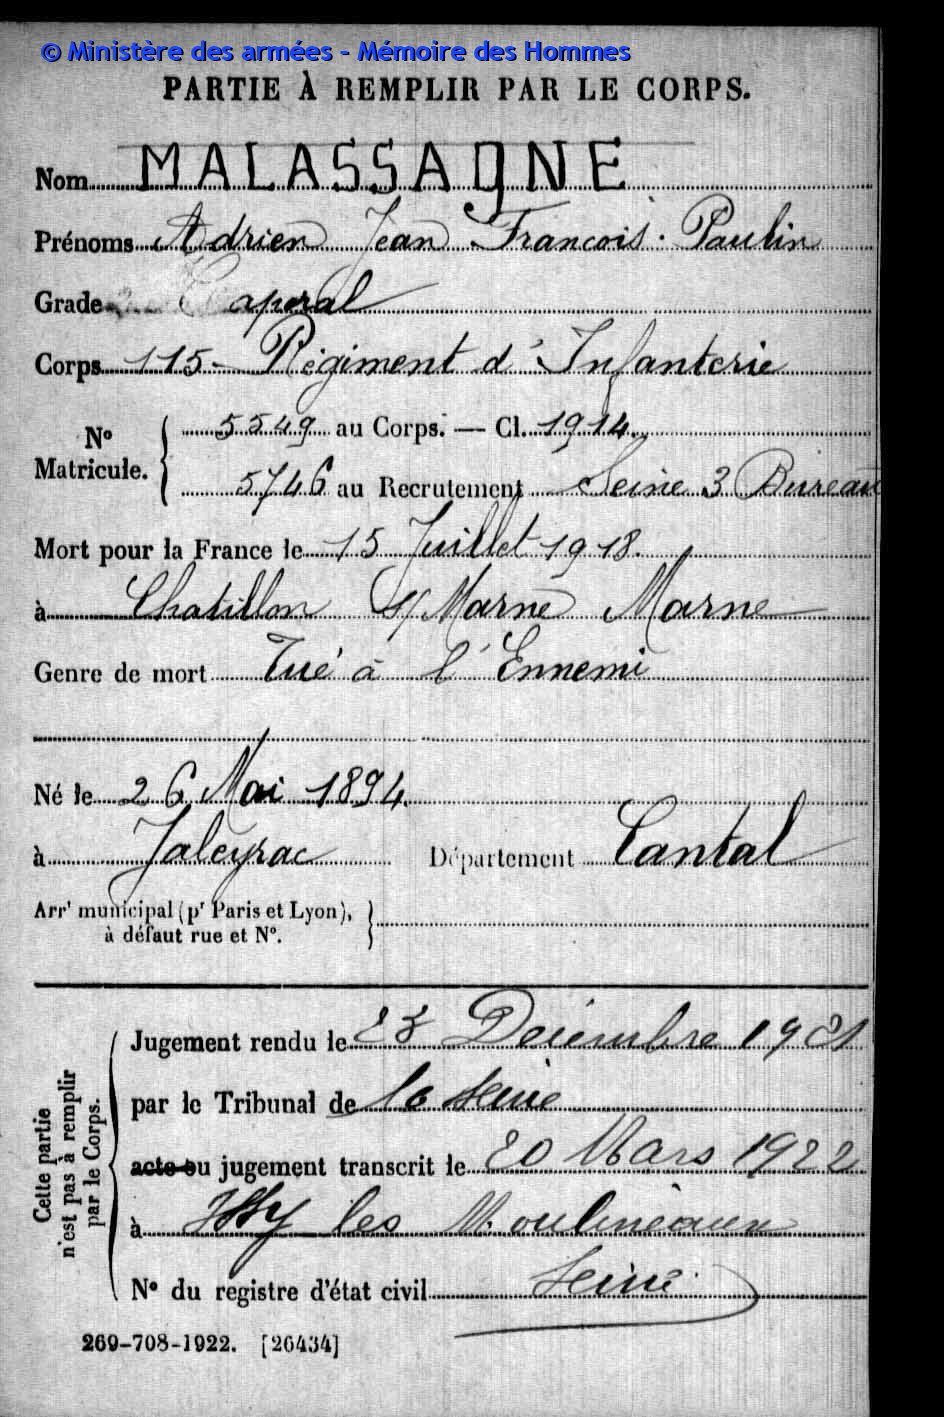 © Ministère des armées - Mémoire des Hommes
PARTIE À REMPLIR PAR LE CORPS.
Nom MALASSAGNE
Prénoms Adrien Jean François Paulin
Grade Caporal
Corps 115 Régiment d'Infanterie
N° Matricule. 5549 au Corps. — Cl. 1914
5746 au Recrutement Seine 3 Bureau
Mort pour la France le 15 Juillet 1918.
à Chatillon s/ Marne Marne
Genre de mort Tué à l'Ennemi
Né le 26 Mai 1894
à Jaleyrac Département Cantal
Arrt municipal (pr Paris et Lyon),
à défaut rue et N°.
Cette partie n'est pas à remplir par le Corps.
Jugement rendu le 23 Décembre 1921
par le Tribunal de la Seine
acte ou jugement transcrit le 20 Mars 1922
à Issy les Moulineaux
N° du registre d'état civil Seine
269-708-1922. [26434]